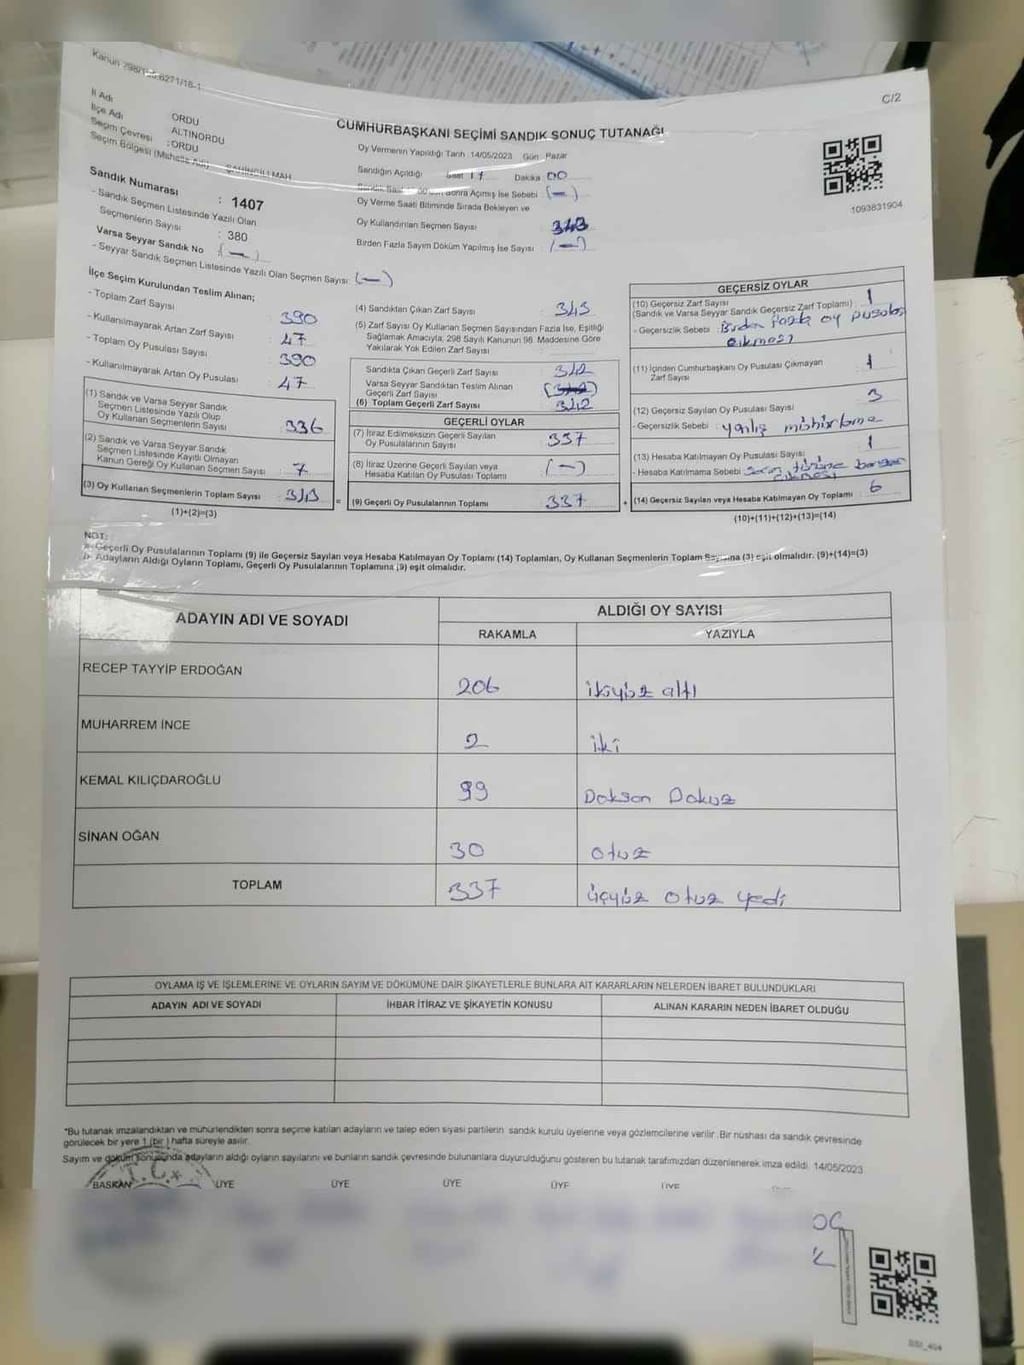 C/2
İl Adı ORDU
İlçe Adı ALTINORDU
Seçim Çevresi :ORDU
Seçim Bölgesi
Sandık Numarası : 1407
- Sandık Seçmen Listesinde Yazılı Olan
Seçmenlerin Sayısı : 380
Varsa Seyyar Sandık No (—)
- Seyyar Sandık Seçmen Listesinde Yazılı Olan Seçmen Sayısı: (—)
CUMHURBAŞKANI SEÇİMİ SANDIK SONUÇ TUTANAĞI
Oy Vermenin Yapıldığı Tarih :14/05/2023 Gün : Pazar
Sandığın Açıldığı Saat 17 Dakika 00
Sonra Açımış İse Sebebi (—)
Oy Verme Saati Bitiminde Sırada Bekleyen ve
Oy Kullandırılan Seçmen Sayısı 343
Birden Fazla Sayım Döküm Yapılmış İse Sayısı (—)
1093831904
İlçe Seçim Kurulundan Teslim Alınan;
- Toplam Zarf Sayısı : 390
- Kullanılmayarak Artan Zarf Sayısı : 47
- Toplam Oy Pusulası Sayısı : 390
- Kullanılmayarak Artan Oy Pusulası : 47
(1) Sandık ve Varsa Seyyar Sandık
Seçmen Listesinde Yazılı Olup
Oy Kullanan Seçmenlerin Sayısı : 336
(2) Sandık ve Varsa Seyyar Sandık
Seçmen Listesinde Kayıtlı Olmayan
Kanun Gereği Oy Kullanan Seçmen Sayısı : 7
(3) Oy Kullanan Seçmenlerin Toplam Sayısı : 343 =
(1)+(2)=(3)
(4) Sandıktan Çıkan Zarf Sayısı : 343
(5) Zarf Sayısı Oy Kullanan Seçmen Sayısından Fazla İse, Eşitliği
Sağlamak Amacıyla, 298 Sayılı Kanunun 98. Maddesine Göre
Yakılarak Yok Edilen Zarf Sayısı
Sandıkta Çıkan Geçerli Zarf Sayısı : 342
Varsa Seyyar Sandıktan Teslim Alınan
Geçerli Zarf Sayısı
(6) Toplam Geçerli Zarf Sayısı : 342
GEÇERLİ OYLAR
(7) İtiraz Edilmeksizin Geçerli Sayılan
Oy Pusulalarının Sayısı : 337
(8) İtiraz Üzerine Geçerli Sayılan veya
Hesaba Katılan Oy Pusulaları Toplamı (—)
(9) Geçerli Oy Pusulalarının Toplamı : 337 +
GEÇERSİZ OYLAR
(10) Geçersiz Zarf Sayısı
(Sandık ve Varsa Seyyar Sandık Geçersiz Zarf Toplamı) : 1
- Geçersizlik Sebebi : Birden Fazla oy pusulası
çıkması
(11) İçinden Cumhurbaşkanı Oy Pusulası Çıkmayan
Zarf Sayısı : 1
(12) Geçersiz Sayılan Oy Pusulası Sayısı : 3
- Geçersizlik Sebebi : yanlış mühürleme
(13) Hesaba Katılmayan Oy Pusulası Sayısı : 1
- Hesaba Katılmama Sebebi
çıkması
(14) Geçersiz Sayılan veya Hesaba Katılmayan Oy Toplamı : 6
(10)+(11)+(12)+(13)=(14)
NOT:
a- Geçerli Oy Pusulalarının Toplamı (9) ile Geçersiz Sayılan veya Hesaba Katılmayan Oy Toplamı (14) Toplamları, Oy Kullanan Seçmenlerin Toplam Sayısına (3) eşit olmalıdır. (9)+(14)=(3)
b- Adayların Aldığı Oyların Toplamı, Geçerli Oy Pusulalarının Toplamına (9) eşit olmalıdır.
ADAYIN ADI VE SOYADI
ALDIĞI OY SAYISI
RAKAMLA YAZIYLA
RECEP TAYYİP ERDOĞAN 206 ikiyüz altı
MUHARREM İNCE 2 iki
KEMAL KILIÇDAROĞLU 99 Doksan Dokuz
SİNAN OĞAN 30 otuz
TOPLAM 337 üçyüz otuz yedi
OYLAMA İŞ VE İŞLEMLERİNE VE OYLARIN SAYIM VE DÖKÜMÜNE DAİR ŞİKAYETLERLE BUNLARA AİT KARARLARIN NELERDEN İBARET BULUNDUKLARI
ADAYIN ADI VE SOYADI İHBAR İTİRAZ VE ŞİKAYETİN KONUSU ALINAN KARARIN NEDEN İBARET OLDUĞU
*Bu tutanak imzalandıktan ve mühürlendikten sonra seçime katılan adayların ve talep eden siyasi partilerin sandık kurulu üyelerine veya gözlemcilerine verilir. Bir nüshası da sandık çevresinde
görülecek bir yere 1 (bir ) hafta süreyle asılır.
Sayım ve döküm sonucunda adayların aldığı oyların sayılarını ve bunların sandık çevresinde bulunanlara duyurulduğunu gösteren bu tutanak tarafımızdan düzenlenerek imza edildi. 14/05/2023
T.C.
BAŞKAN ÜYE ÜYE ÜYE ÜYE ÜYE